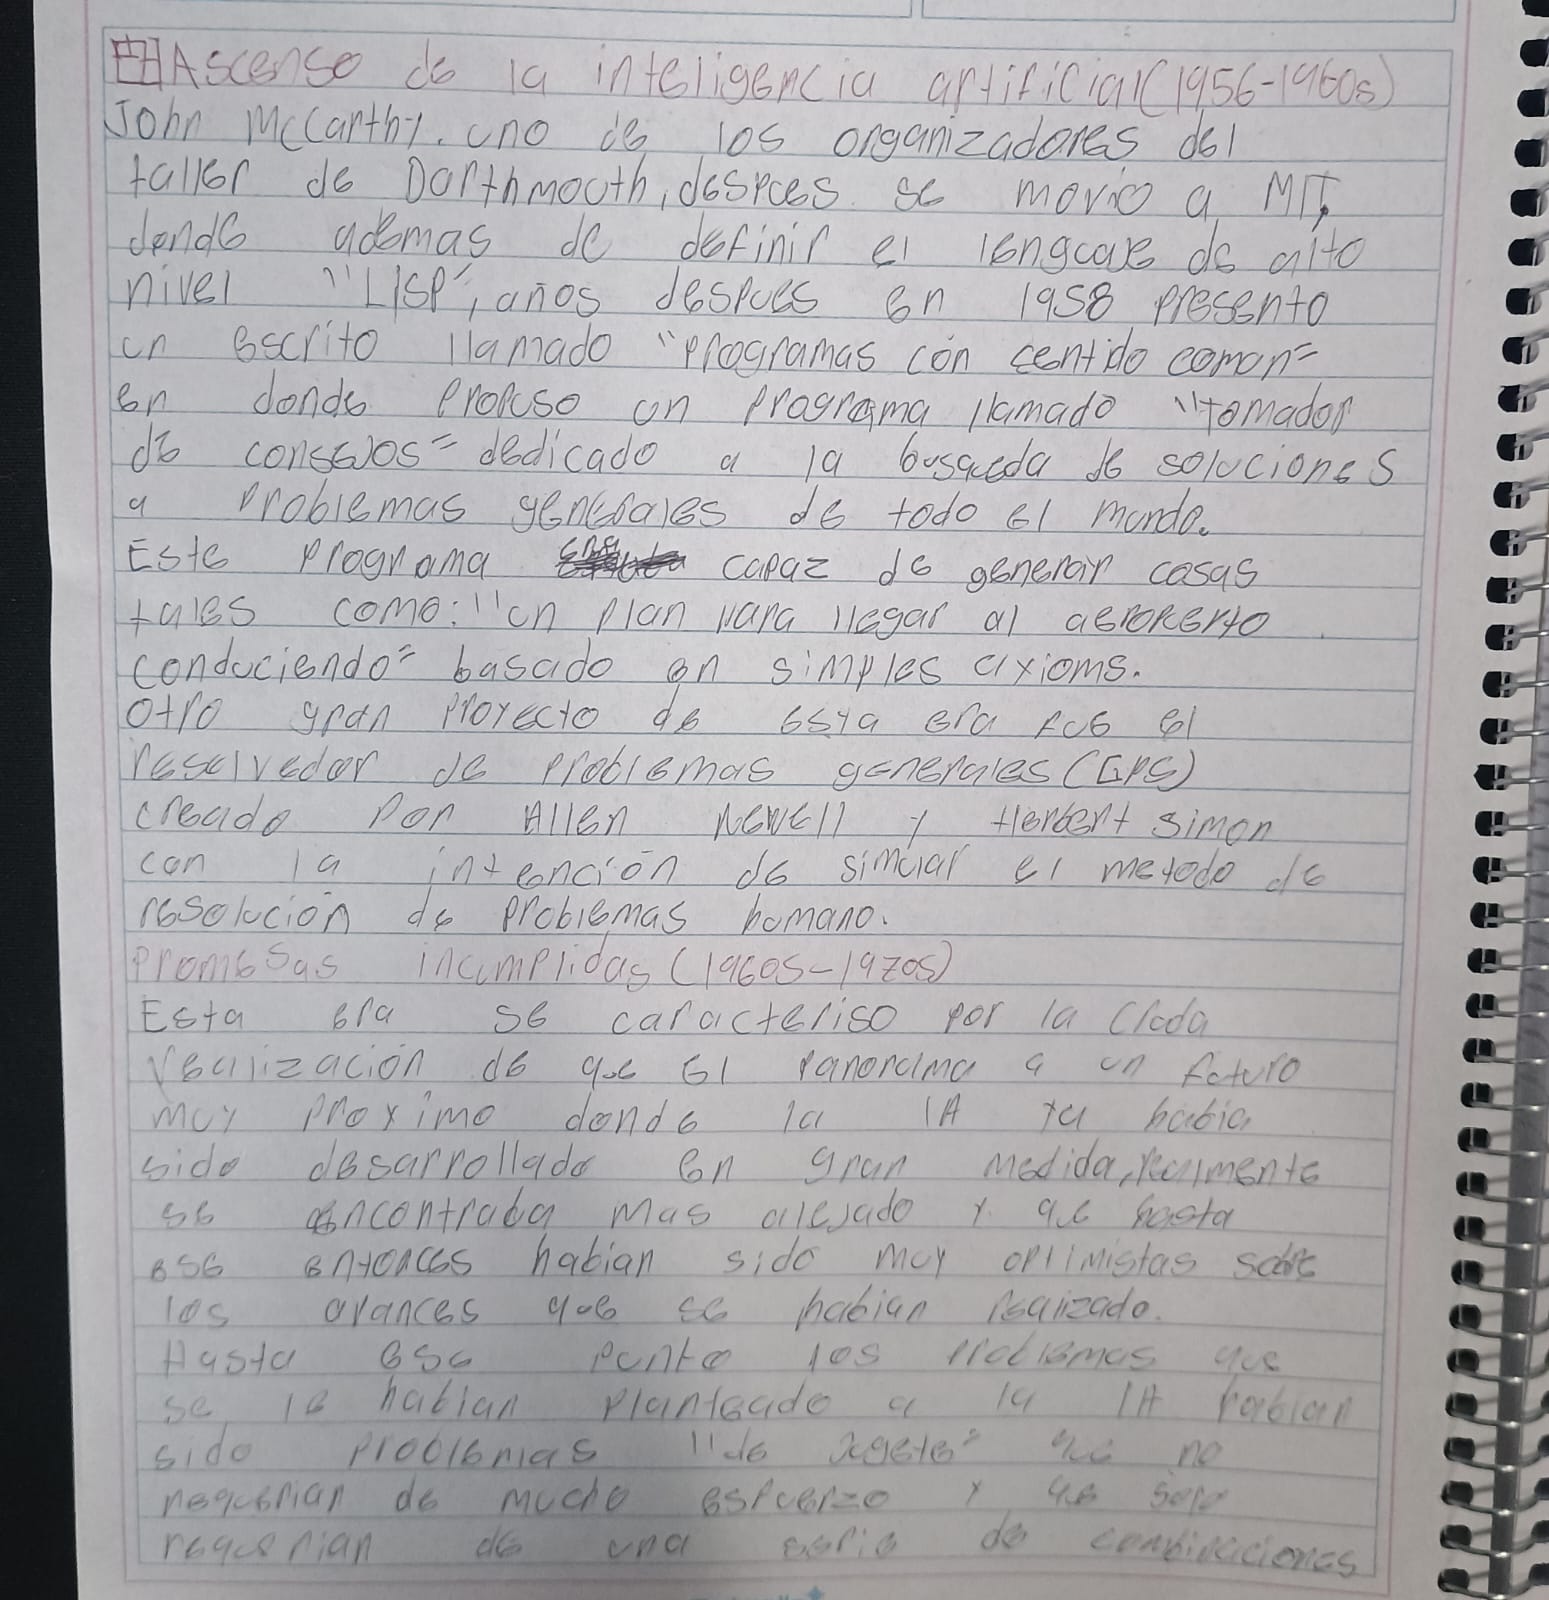 Ascenso de la inteligencia artificial (1956-1960s)
John McCarthy. uno de los organizadores del
taller de Dorthmouth, despues se movio a MIT,
donde ademas de definir el lenguaje de alto
nivel "LISP", años despues en 1958 presento
un escrito llamado "programas con sentido comun"
en donde propuso un programa llamado "tomador
de consejos" dedicado a la busqueda de soluciones
a problemas generales de todo el mundo.
Este programa capaz de generar cosas
tales como: "un plan para llegar al aeropuerto
conduciendo" basado en simples axioms.
otro gran proyecto de esta era fue el
resolvedor de problemas generales (GPS)
creado por Allen Newell y Herbert Simon
con la intención de simular el metodo de
resolución de problemas humano.
promesas incumplidas (1960s-1970s)
Esta era se caracteriso por la cruda
realización de que el panorama a un futuro
muy proximo donde la IA ya habia
sido desarrollado en gran medida, realmente
se encontraba mas alejado y que hasta
ese entonces habian sido muy optimistas sobre
los avances que se habian realizado.
Hasta ese punto los problemas que
se le habian planteado a la IA habian
sido problemas "de juguete" que no
requerian de mucho esfuerzo y que solo
requerian de una serie de combinaciones